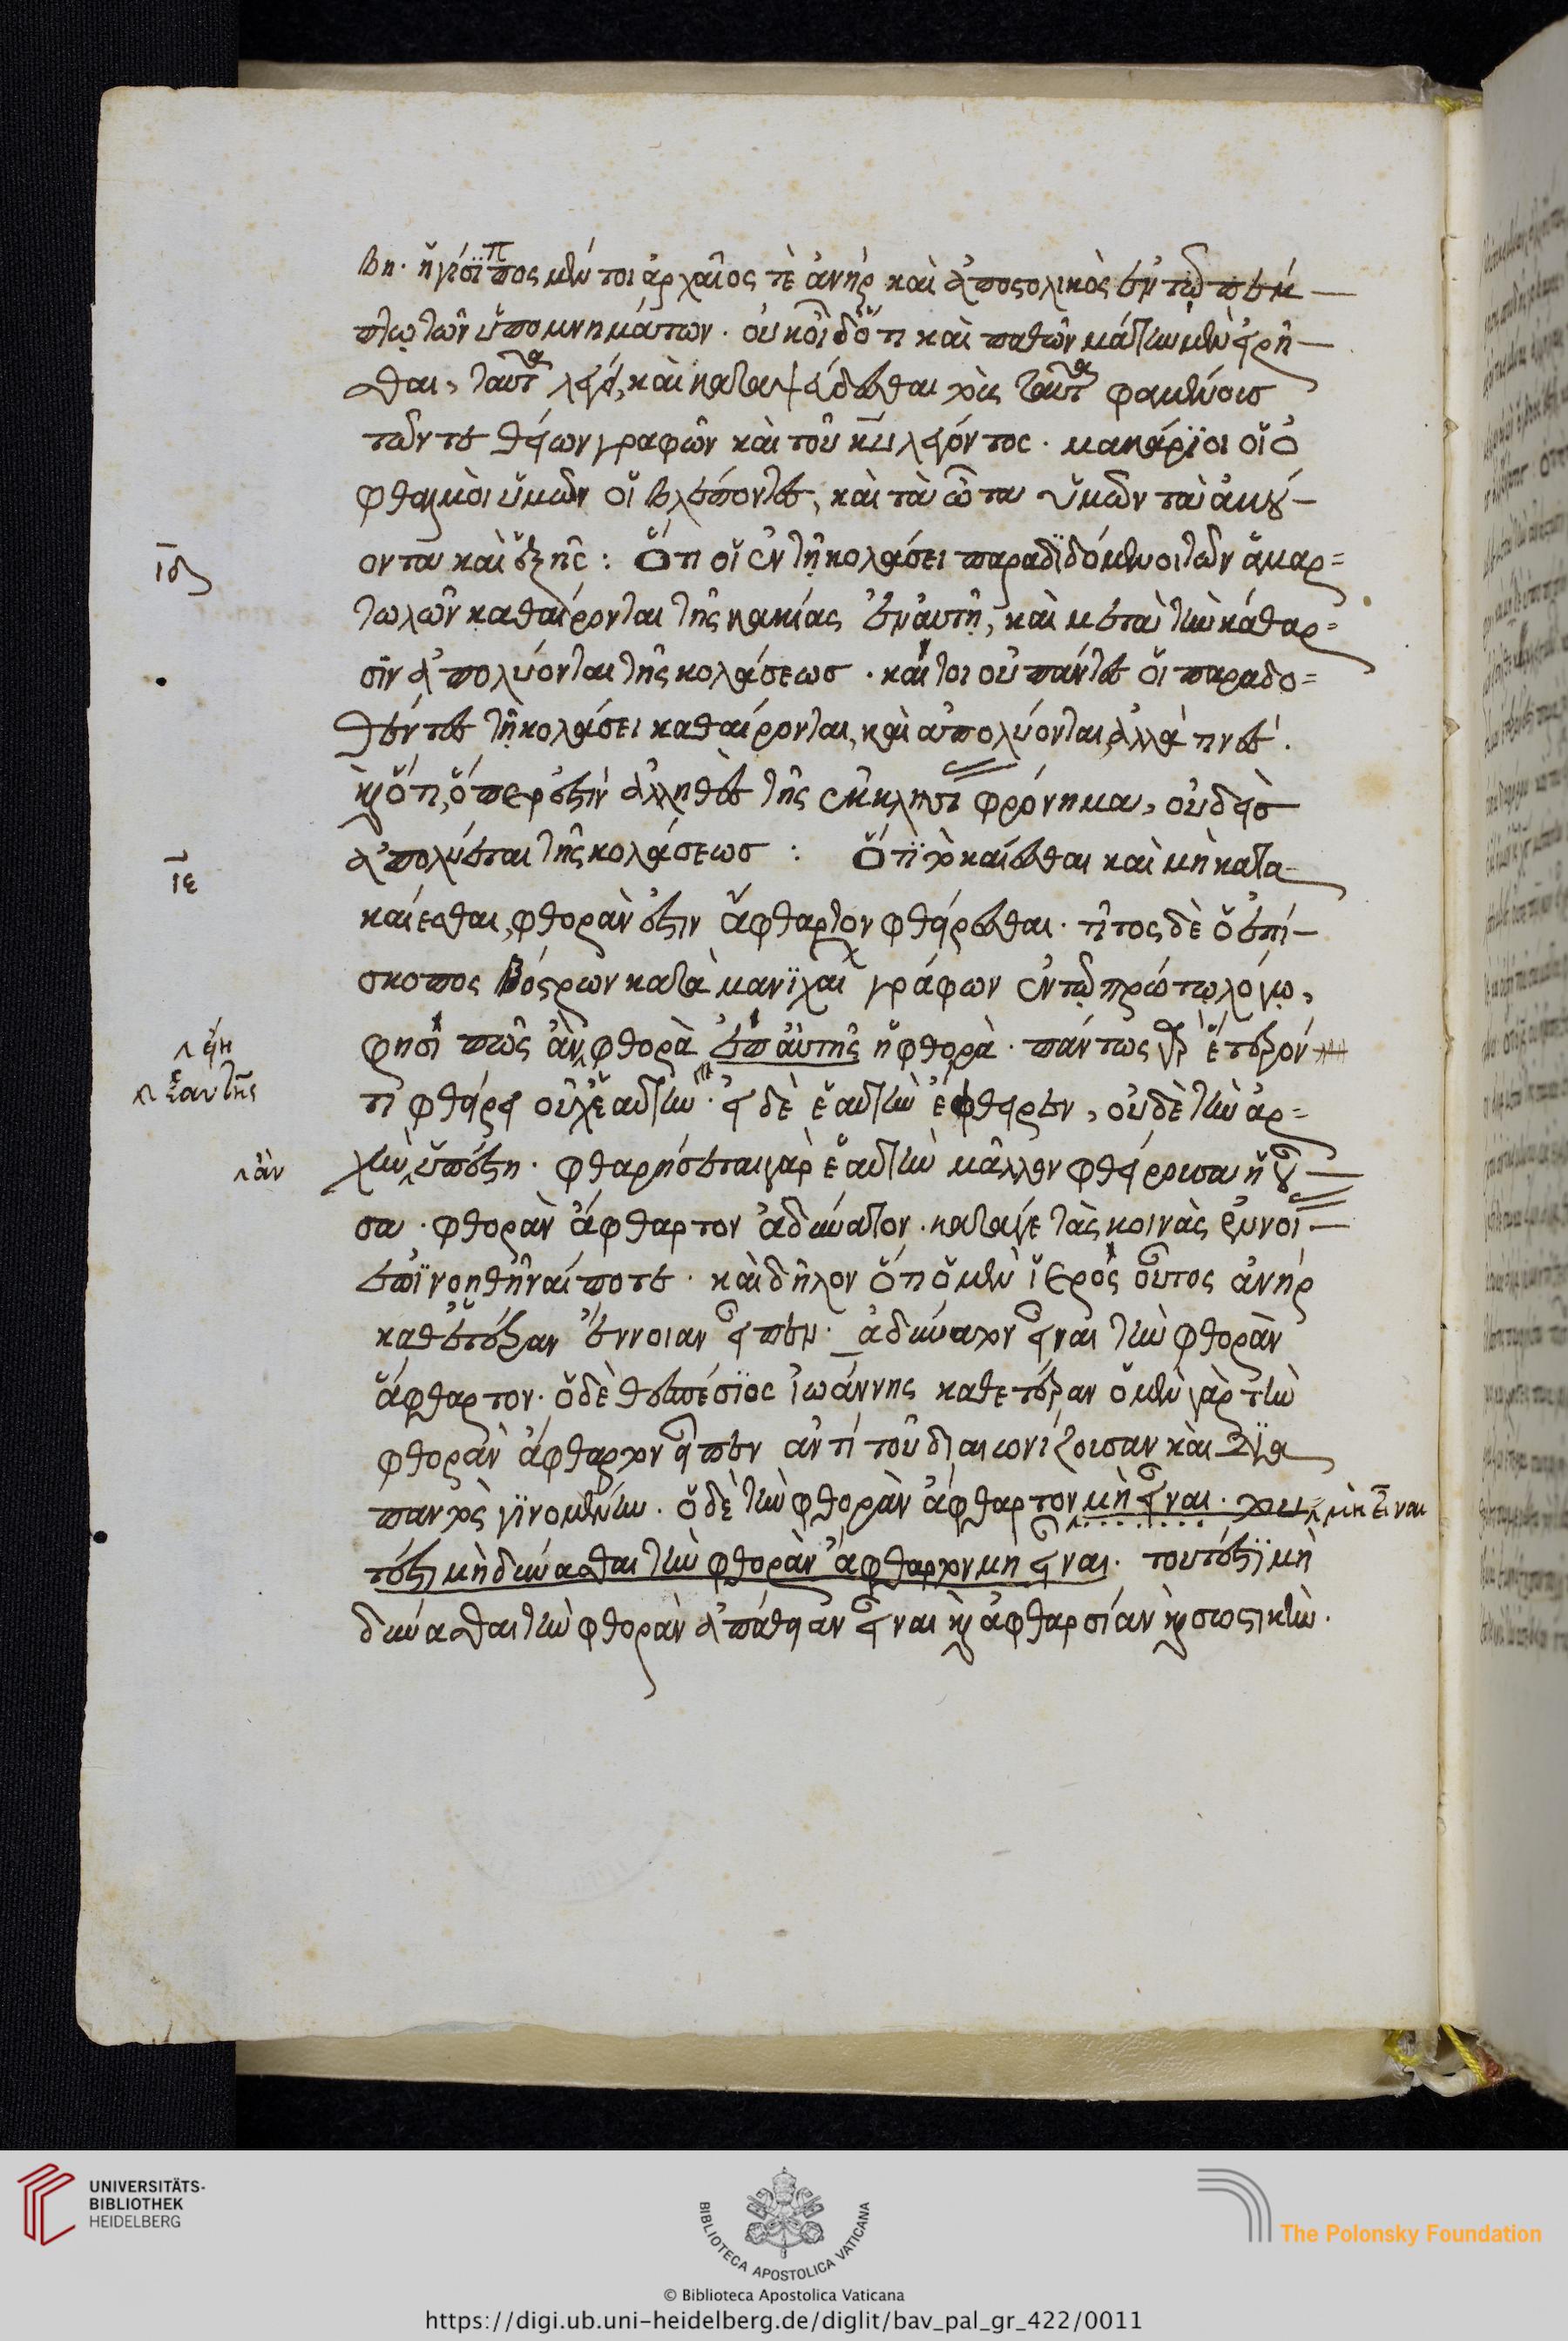 βη· ἡγίσϊππος μέν τοι ἀρχαῖος τὲ ἀνὴρ καὶ ἀποστολικὸς ἐν τῷ πέμ
πτῳ τῶν ὑπομνημάτων· οὐκ οἶδ' ὅτι καὶ παθὼν μάτην μὲν εἰρῆ
σθαι, ταῦτα λέγει, καὶ καταψεύδεσθαι τοὺς ταῦτα φαμένους
τῶν τε θείων γραφῶν καὶ τοῦ κυ λέγοντος· μακάρϊοι οἱ ὀ
φθαλμοὶ ὑμῶν οἱ βλέποντες, καὶ τὰ ὦτα ὑμῶν τὰ ἀκού
οντα καὶ ἑξῆς: Ὅτι οἱ ἐν τῇ κολάσει παραδϊδόμενοι τῶν ἁμαρ=
ιδ
τωλῶν καθαίρονται τῆς κακίας ἐν αὐτῇ, καὶ μετὰ τὴν κάθαρ=
σϊν ἀπολύονται τῆς κολάσεως· καί τοι οὐ πάντες οἱ παραδο=
θέντες τῇ κολάσει καθαίρονται, καὶ ἀπολύονται, ἀλλά τινες·
καὶ ὅτι, ὅπερ ἐστὶν ἀληθὲς τῆς ἐκκλησι φρόνημα, οὐδεὶς
ἀπολύεται τῆς κολάσεως: Ὅτϊ τὸ καίεσθαι καὶ μὴ κατα
ιε
καίεσθαι, φθορὰν ἐστὶν ἄφθαρτον φθείρεσθαι· τίτος δὲ ὁ ἐπί
σκοπος βόστρων κατὰ μανϊχαί γράφων ἐν τῷ πρώτῳ λόγῳ,
φησὶ πῶς ἂν φθορὰ ἐπ' αὐτῆς ἡ φθορὰ· πάντως γὰρ ἕτερόν
λ εἴη
λ ἐξ αυτῆς
τι φθείρει οὐχ ἑαυτήν· εἰ δὲ ἑαυτὴν ἔφθειρεν, οὐδὲ τὴν ἀρ=
χὴν ὑπέστη· φθαρήσεται γὰρ ἑαυτὴν μᾶλλον φθείρουσα ἢ οὖ
λ ἂν
σα· φθορὰν ἄφθαρτον ἀδύνατον· κατά γε τὰς κοινὰς ἐννοί
ἐπϊνοηθῆναί ποτε· καὶ δῆλον ὅτι ὁ μὲν ἱερὸς οὗτος ἀνὴρ
καθ' ἑτέραν ἔννοιαν εἶπεν· ἀδύνατον εἶναι τὴν φθορὰν
ἄφθαρτον· ὁ δὲ θεσπέσϊος ἰωάννης καθ' ἑτέραν ὁ μὲν γὰρ τὴν
φθορὰν ἄφθαρτον εἶπεν ἀντὶ τοῦ διαιωνίζουσαν καὶ διὰ
παντὸς γϊνομένην· ὁ δὲ τὴν φθορὰν ἄφθαρτον μὴ εἶναι· του
λ μὴ εἶναι
τέστι μὴ δύνασθαι τὴν φθορὰν ἄφθαρτον μὴ εἶναι· τουτέστϊ μὴ
δύνασθαι τὴν φθορὰν ἀπάθειαν εἶναι καὶ ἀφθαρσίαν καὶ σωστικὴν·
UNIVERSITÄTS-
BIBLIOTHEK
HEIDELBERG
BIBLIOTECA APOSTOLICA VATICANA
The Polonsky Foundation
© Biblioteca Apostolica Vaticana
https://digi.ub.uni-heidelberg.de/diglit/bav_pal_gr_422/0011